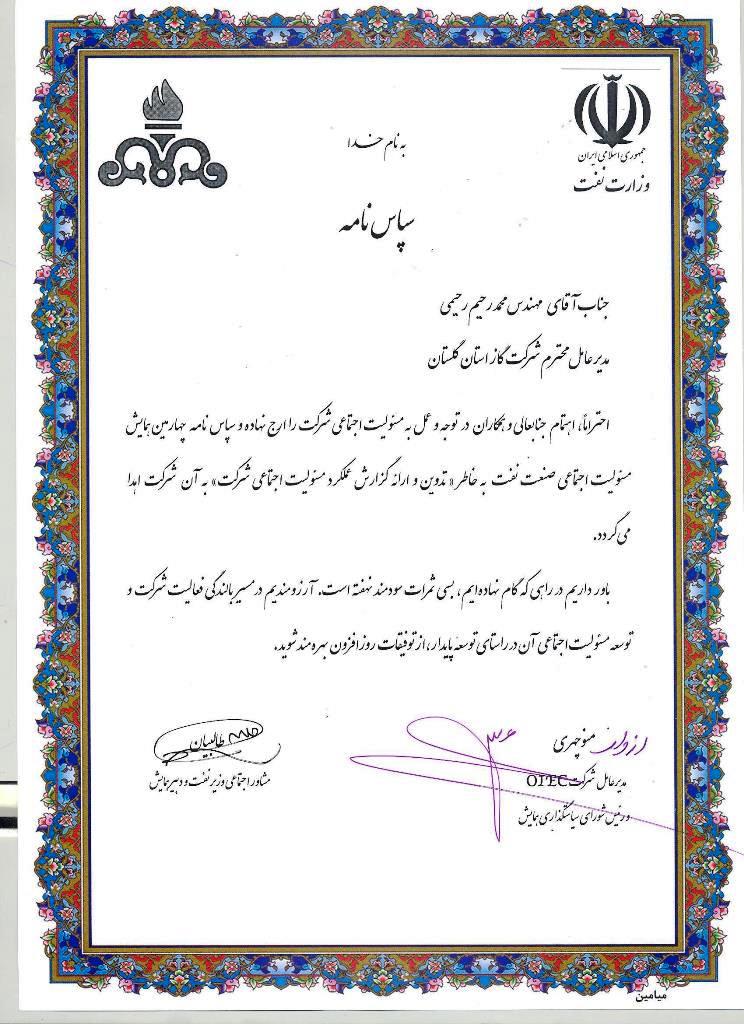 جمهوری اسلامی ایران
وزارت نفت
به نام خدا
سپاس نامه
جناب آقای مهندس محمد رحیم رحیمی
مدیرعامل محترم شرکت گاز استان گلستان
احتراماً، اهتمام جنابعالی و همکاران در توجه و عمل به مسئولیت اجتماعی شرکت را ارج نهاده و سپاس نامه چهارمین همایش
مسئولیت اجتماعی صنعت نفت به خاطر «تدوین و ارائه گزارش عملکرد مسئولیت اجتماعی شرکت» به آن شرکت اهدا
می‌گردد.
باور داریم در راهی که گام نهاده‌ایم، بسی ثمرات سودمند نهفته است. آرزومندیم در مسیر بالندگی فعالیت شرکت و
توسعه مسئولیت اجتماعی آن در راستای توسعه پایدار، از توفیقات روزافزون بهره‌مند شوید.
منوچهری
مدیرعامل شرکت OIEC
و رئیس شورای سیاستگذاری همایش
طالبیان
مشاور اجتماعی وزیر نفت و دبیر همایش
میامین